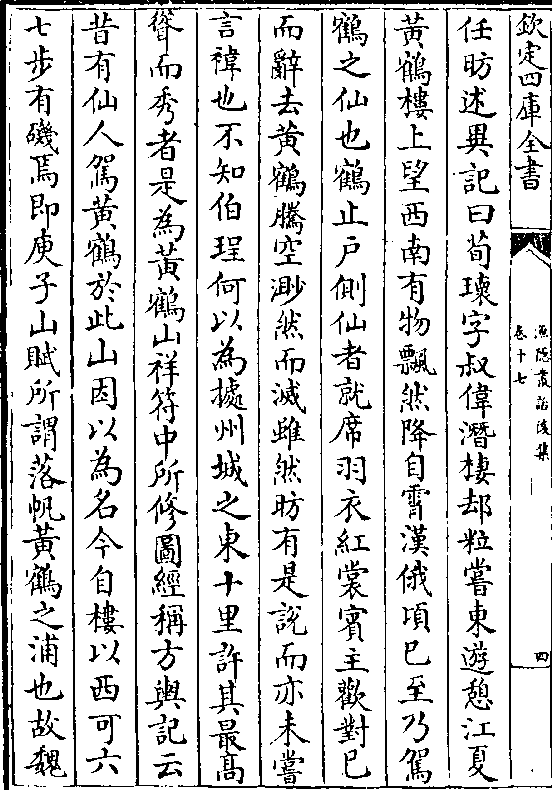 欽定四庫全書
漁隱叢話後集
卷十七
四
任昉述異記曰荀瓌字叔偉潛棲却粒嘗東遊憩江夏
黃鶴樓上望西南有物飄然降自霄漢俄頃已至乃駕
鶴之仙也鶴止戶側仙者就席羽衣紅裳賓主歡對已
而辭去黃鶴騰空渺然而滅雖然昉有是說而亦未嘗
言褘也不知伯珵何以為據州城之東十里許其最高
聳而秀者是為黃鶴山祥符中所修圖經稱方輿記云
昔有仙人駕黃鶴於此山因以為名今自樓以西可六
七步有磯焉即庾子山賦所謂落帆黃鶴之浦也故魏